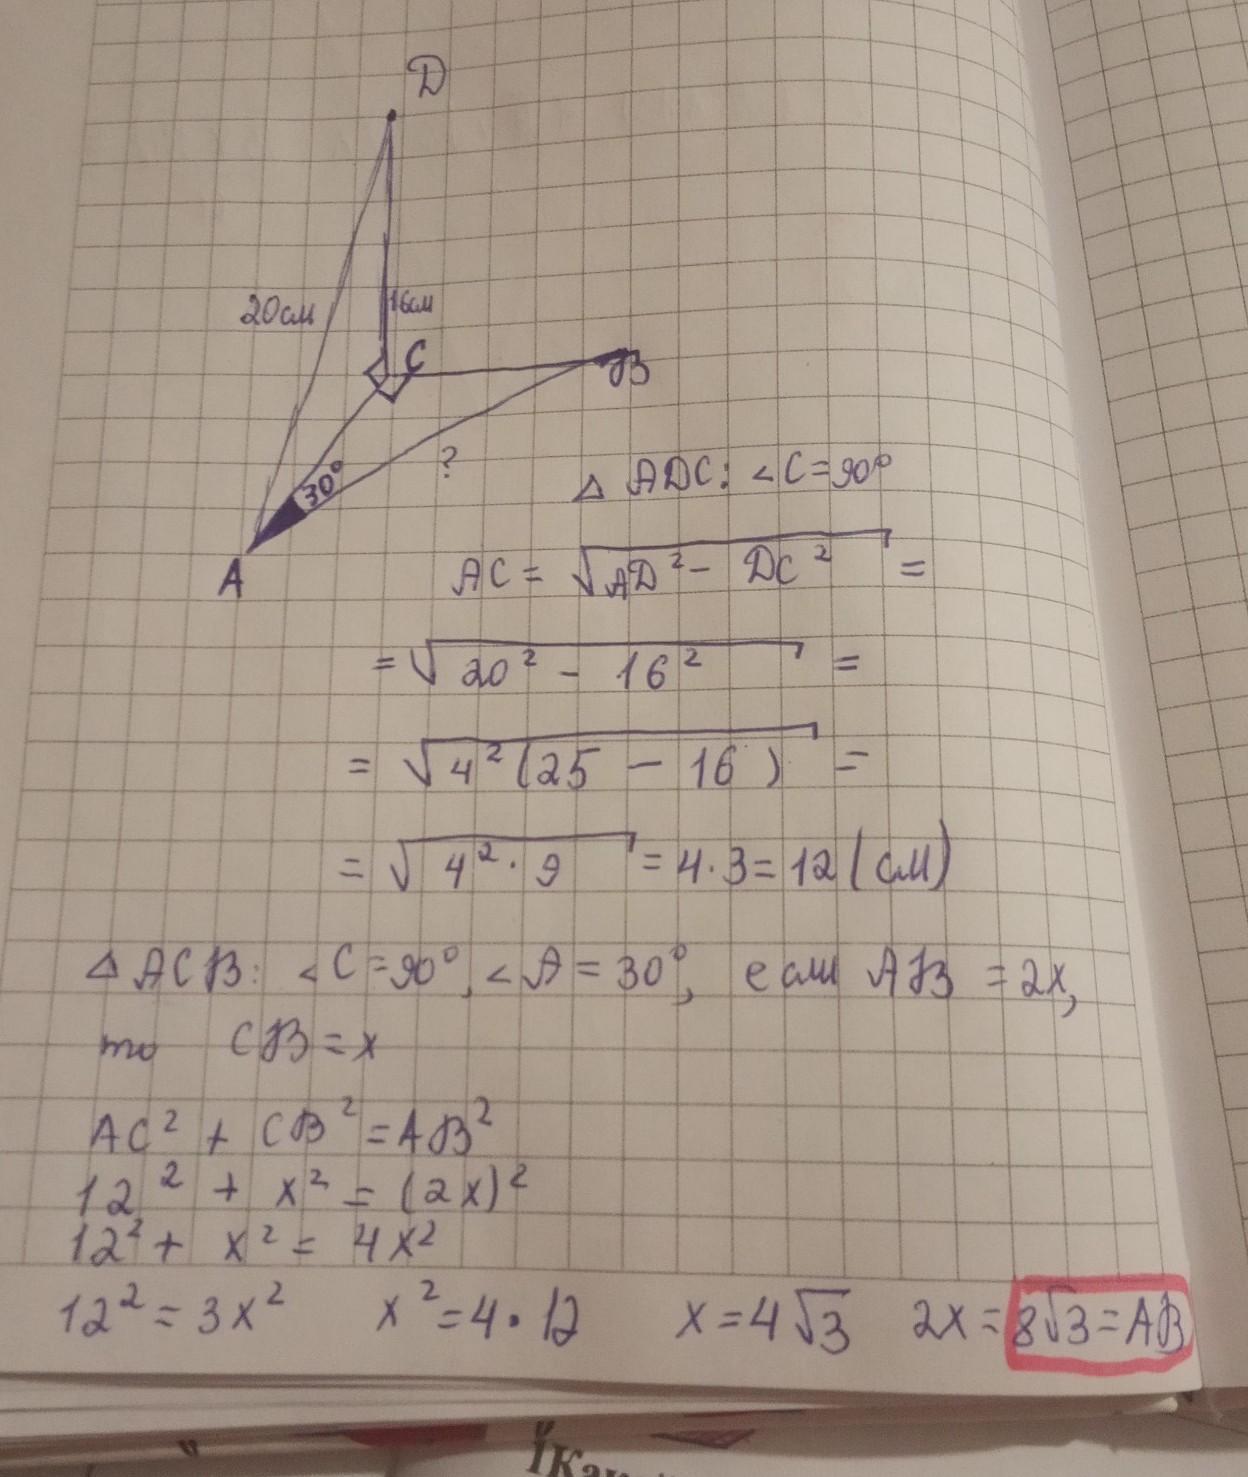 D
20см
16см
C
B
30°
?
A
△ ADC: ∠C=90°
AC = √AD² - DC² =
= √20² - 16² =
= √4²(25 - 16) =
= √4² · 9 = 4·3=12 (см)
△ ACB: ∠C=90°, ∠A = 30°, если AB = 2x,
то CB = x
AC² + CB² = AB²
12² + x² = (2x)²
12² + x² = 4x²
12² = 3x² x² = 4·12 x = 4√3 2x = 8√3 = AB